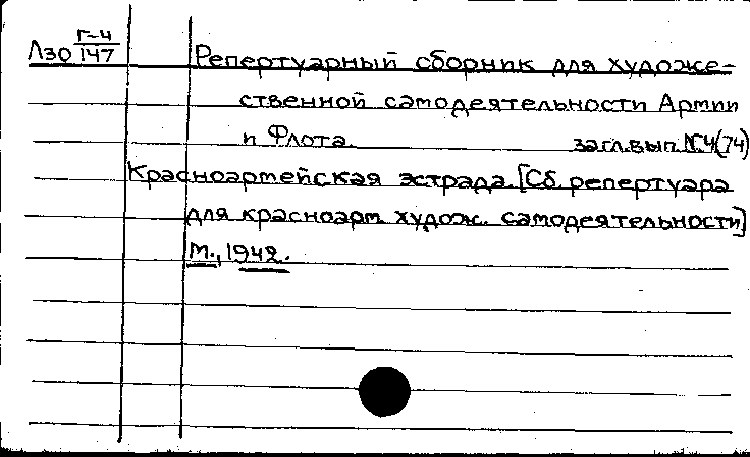 Г-4
Лзо 147
Репертуарный сборник для художе-
ственной самодеятельности Армии
и Флота. загл.вып. №4(74)
Красноармейская эстрада. [Сб. репертуара
для красноарм. худож. самодеятельности]
М., 1942.